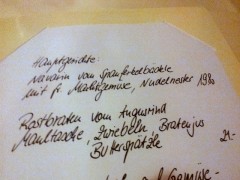 Hauptgerichte:
Navarin vom Spanferkelbäckle
mit fr. Marktgemüse, Nudelnester 19,80
Rostbraten vom Angusrind
Maultasche, Zwiebeln, Bratenjus
Butterspätzle 21.-